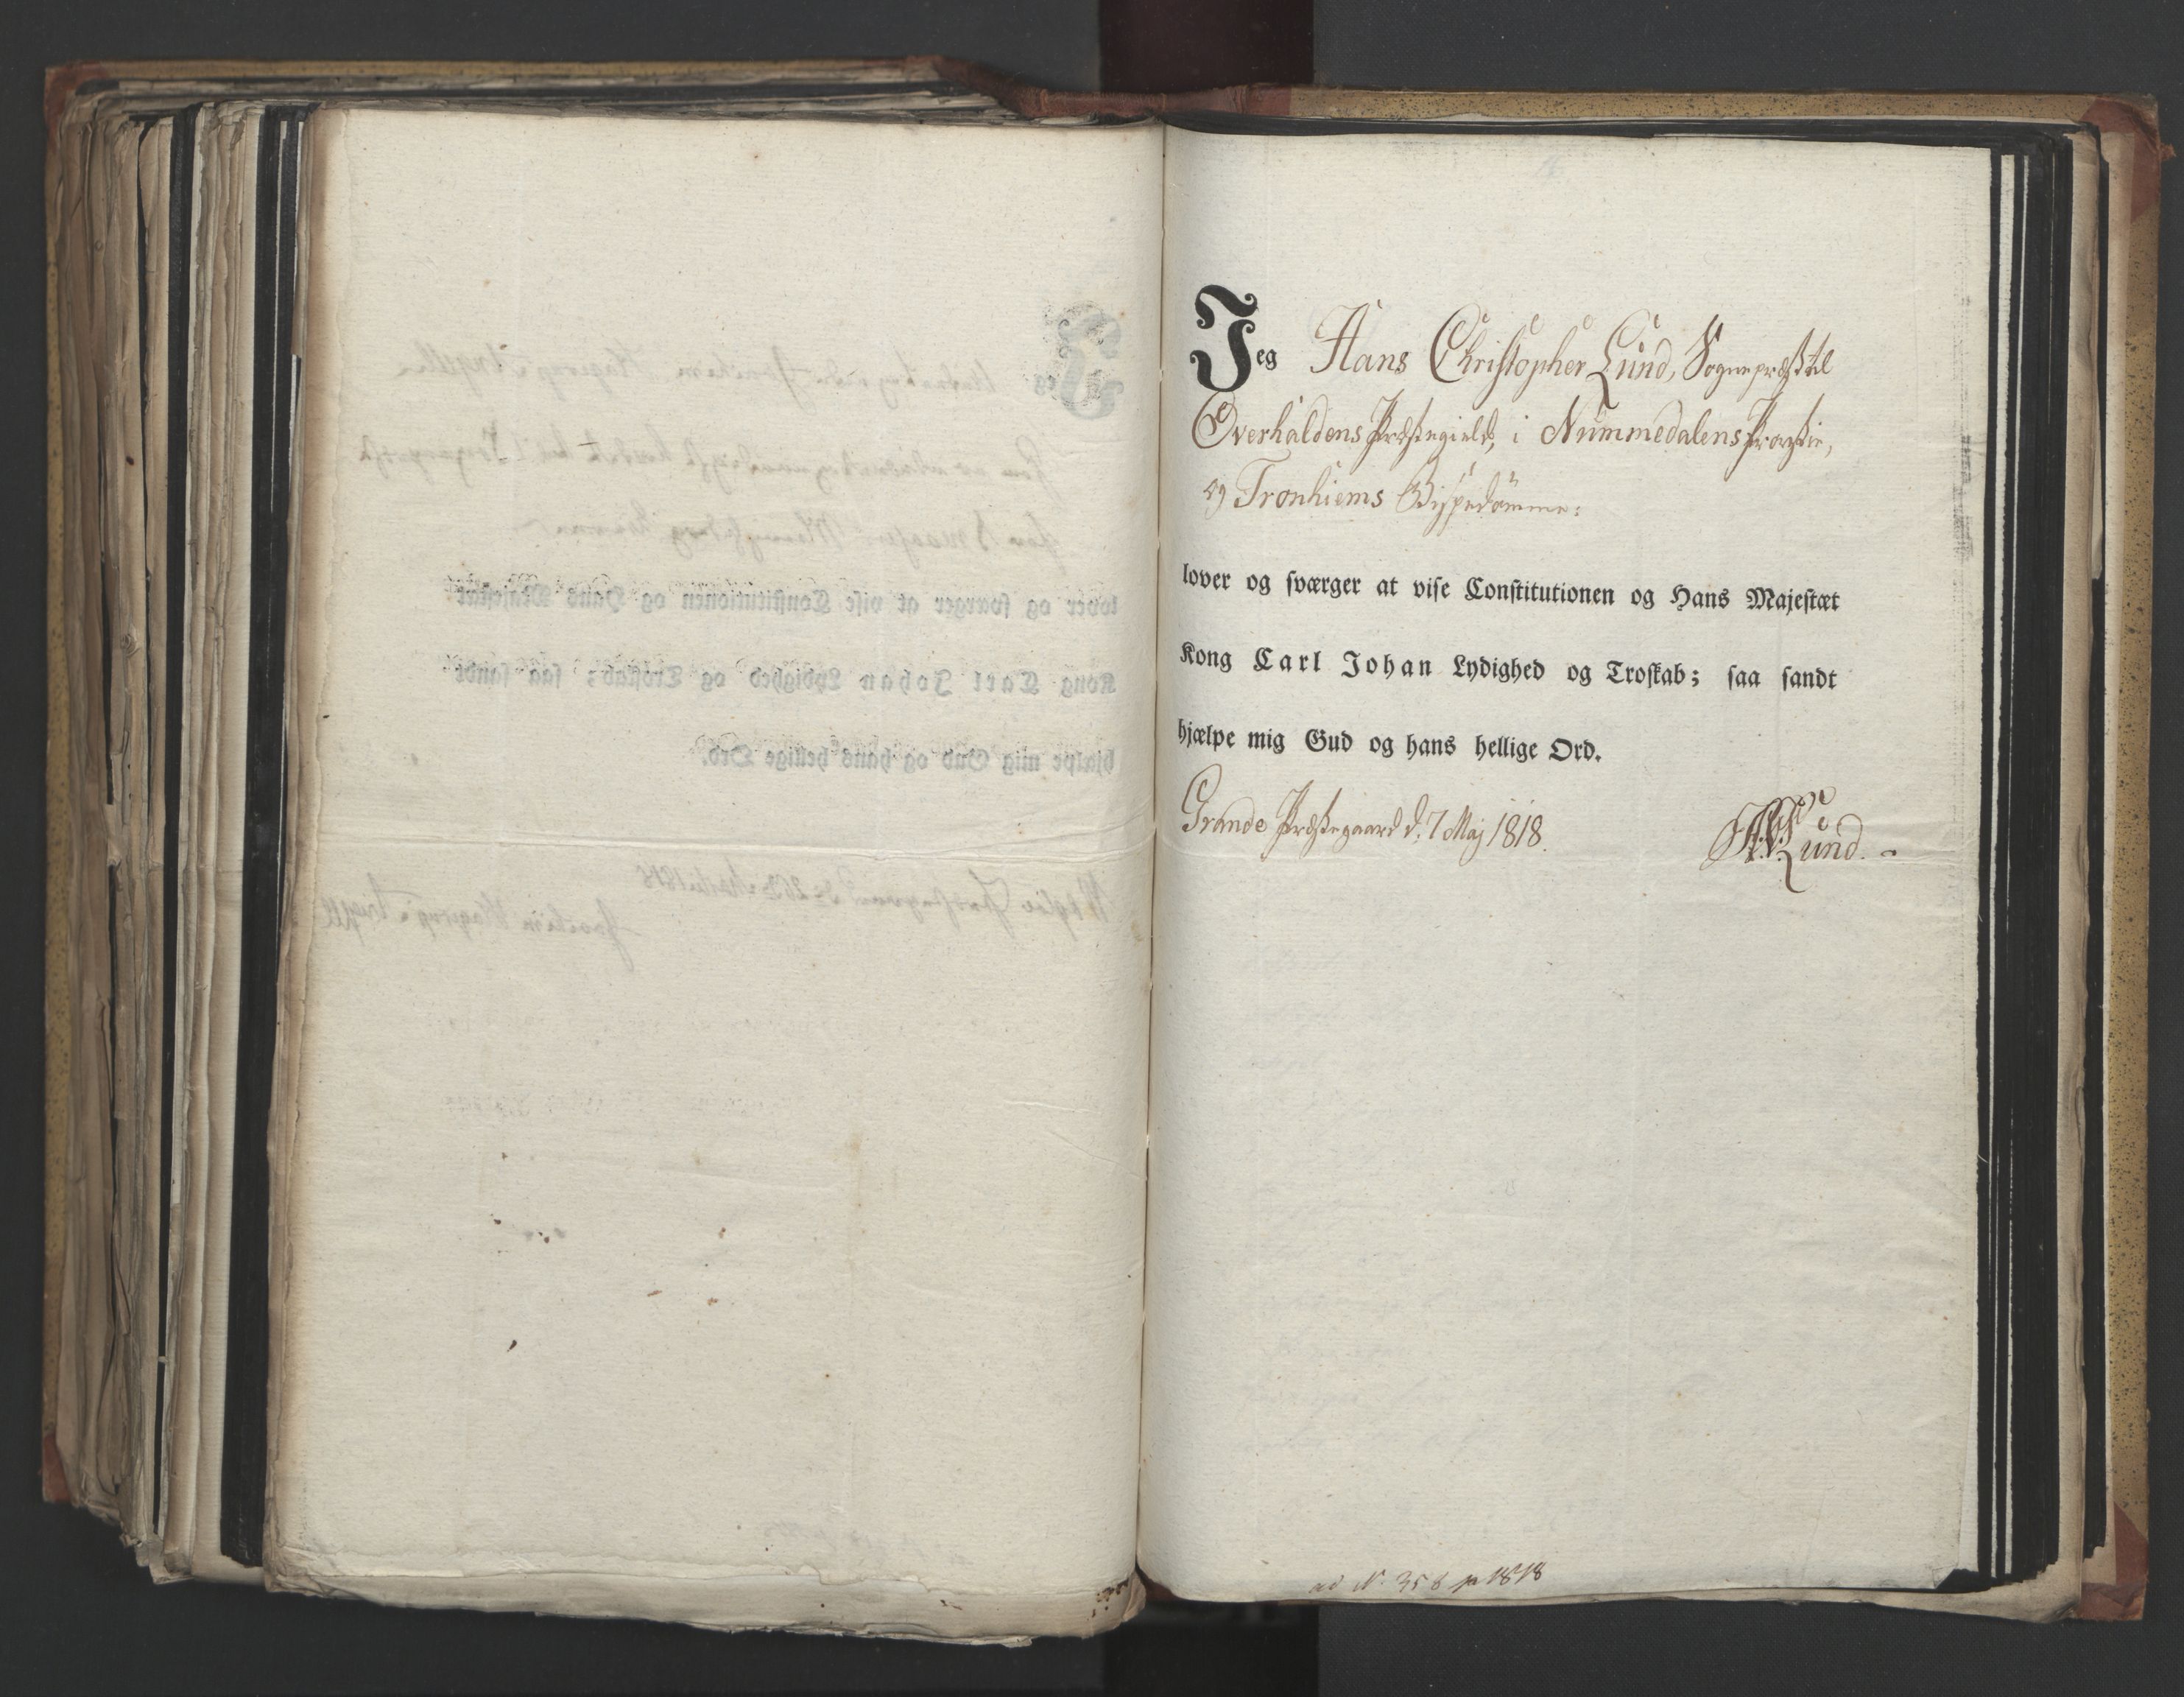 Jeg Hans Christopher Lund, Sognepræst til
Overhaldens Præstegield, i Nummedalens Provstie,
og Tronhiems Bispedømme:
lover og sværger at vise Constitutionen og Hans Majestæt
Kong Carl Johan Lydighed og Troskab; saa sandt
hjælpe mig Gud og hans hellige Ord.
Grande Præstegaard d. 7 Maj 1818.
HCLund.
ad N. 358 p 1818